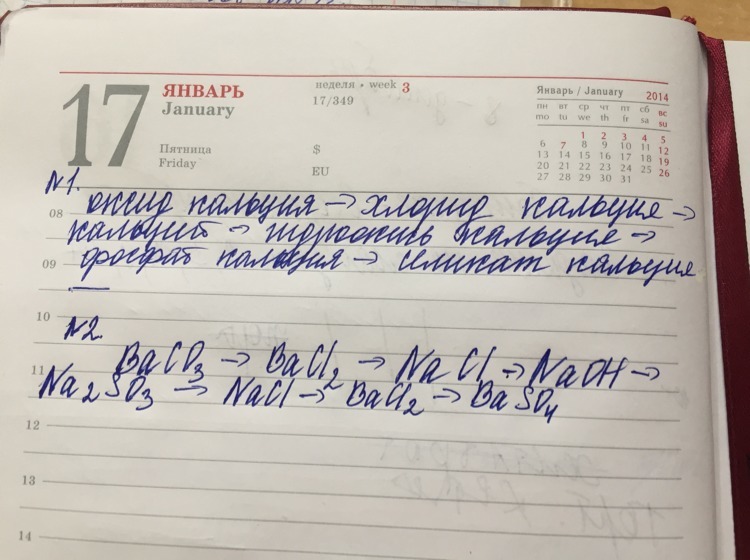 17 ЯНВАРЬ
January
Пятница
Friday
неделя • week 3
17/349
$
EU
Январь / January 2014
пн вт ср чт пт сб вс
mo tu we th fr sa su
1 2 3 4 5
6 7 8 9 10 11 12
13 14 15 16 17 18 19
20 21 22 23 24 25 26
27 28 29 30 31
№1.
08 оксид кальция → хлорид кальция →
кальцит → гидроокись кальция →
09 фосфат кальция → силикат кальция
10
№2.
11 BaCO3 → BaCl2 → NaCl → NaOH →
Na2SO3 → NaCl → BaCl2 → BaSO4
12
13
14